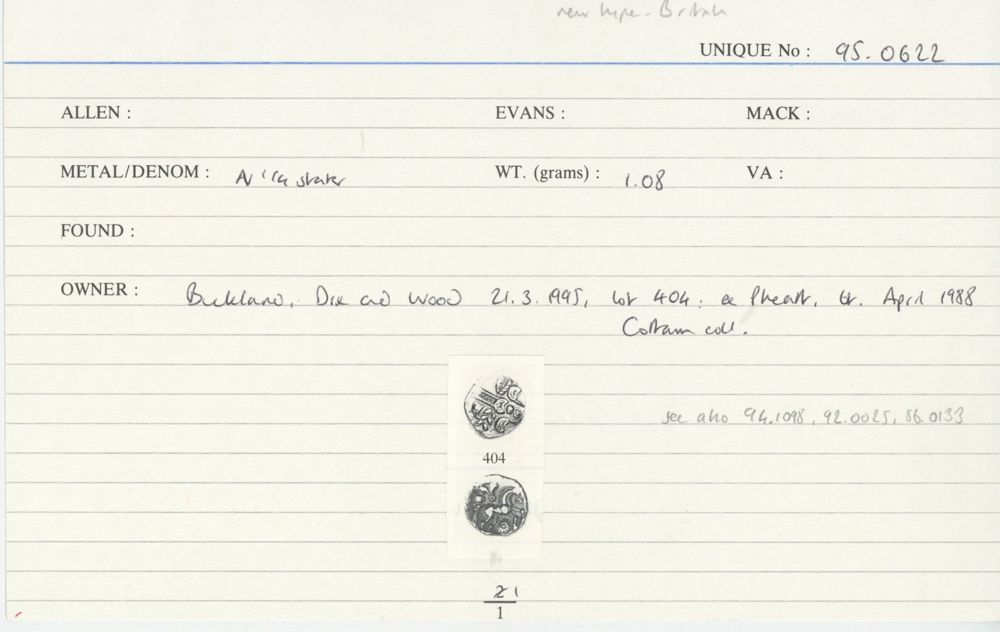 new type - British
UNIQUE No : 95.0622
ALLEN : EVANS : MACK :
METAL/DENOM : AV 1/4 stater WT. (grams) : 1.08 VA :
FOUND :
OWNER : Buckland, Dix and Wood 21.3.1995, lot 404: ex Pheatt, bt. April 1988
Cottam coll.
404
see also 94.1098, 92.0025, 86.0133
21
1